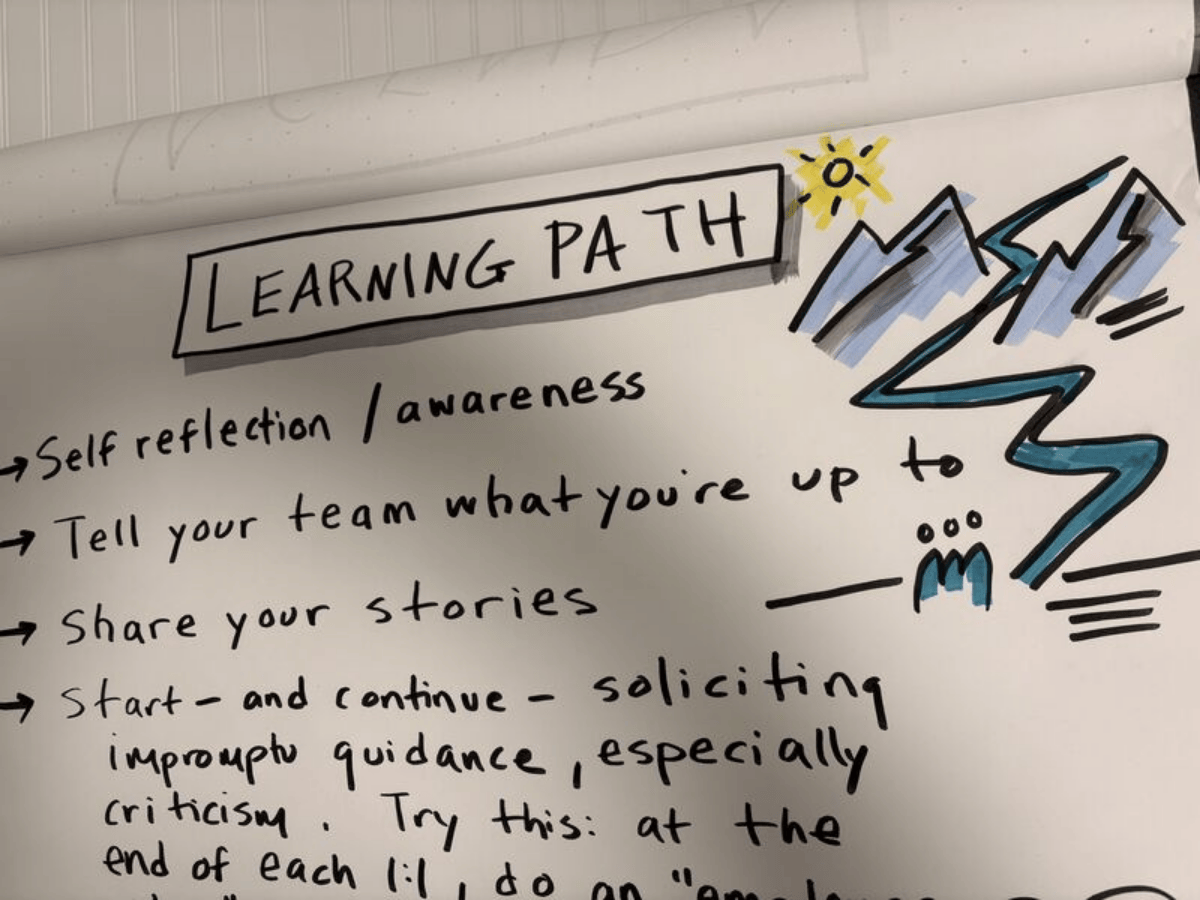 LEARNING PATH
→ Self reflection / awareness
→ Tell your team what you're up to
→ Share your stories
→ Start - and continue - soliciting
impromptu guidance, especially
criticism. Try this: at the
end of each 1:1, do an